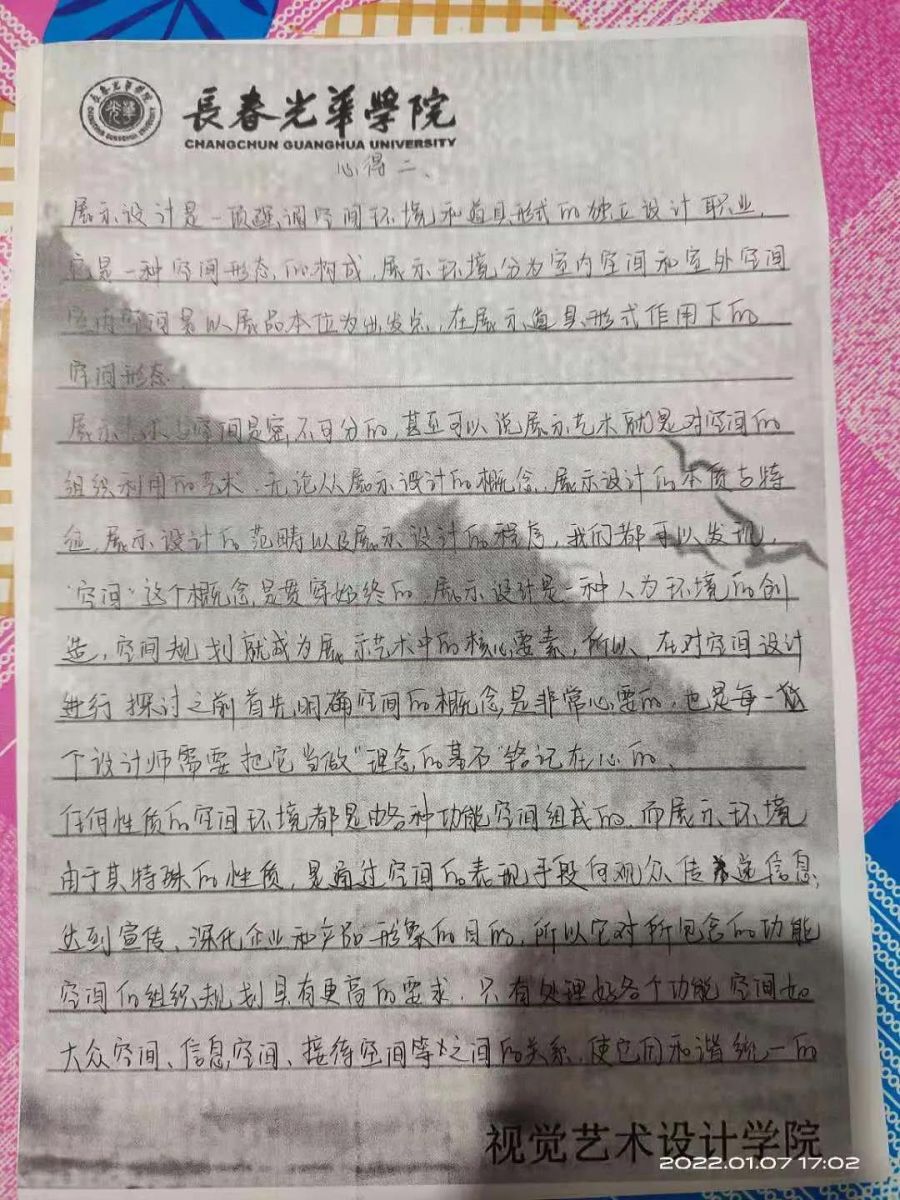 長春光華學院
CHANGCHUN GUANGHUA UNIVERSITY
心得二、
展示设计是一项强调空间环境和道具形式的独立设计职业，
它是一种空间形态的构成，展示环境分为室内空间和室外空间
室内空间是以展品本位为出发点，在展示道具形式作用下的
空间形态。
展示艺术与空间是密不可分的，甚至可以说展示艺术就是对空间的
组织利用的艺术 无论从展示设计的概念、展示设计的本质与特
征、展示设计的范畴以及展示设计的程序，我们都可以发现，
"空间"这个概念是贯穿始终的，展示设计是一种人为环境的创
造，空间规划就成为展示艺术中的核心要素，所以、在对空间设计
进行探讨之前首先明确空间的概念是非常必要的，也是每一
个设计师需要把它当做"理念的基石"铭记在心的、
任何性质的空间环境都是由各种功能空间组成的 而展示环境
由于其特殊的性质，是通过空间的表现手段向观众传递信息，
达到宣传、深化企业和产品形象的目的，所以它对所包含的功能
空间的组织规划具有更高的要求，只有处理好各个功能空间如
大众空间、信息空间、接待空间等之间的关系，使它们和谐统一的
视觉艺术设计学院
2022.01.07 17:02